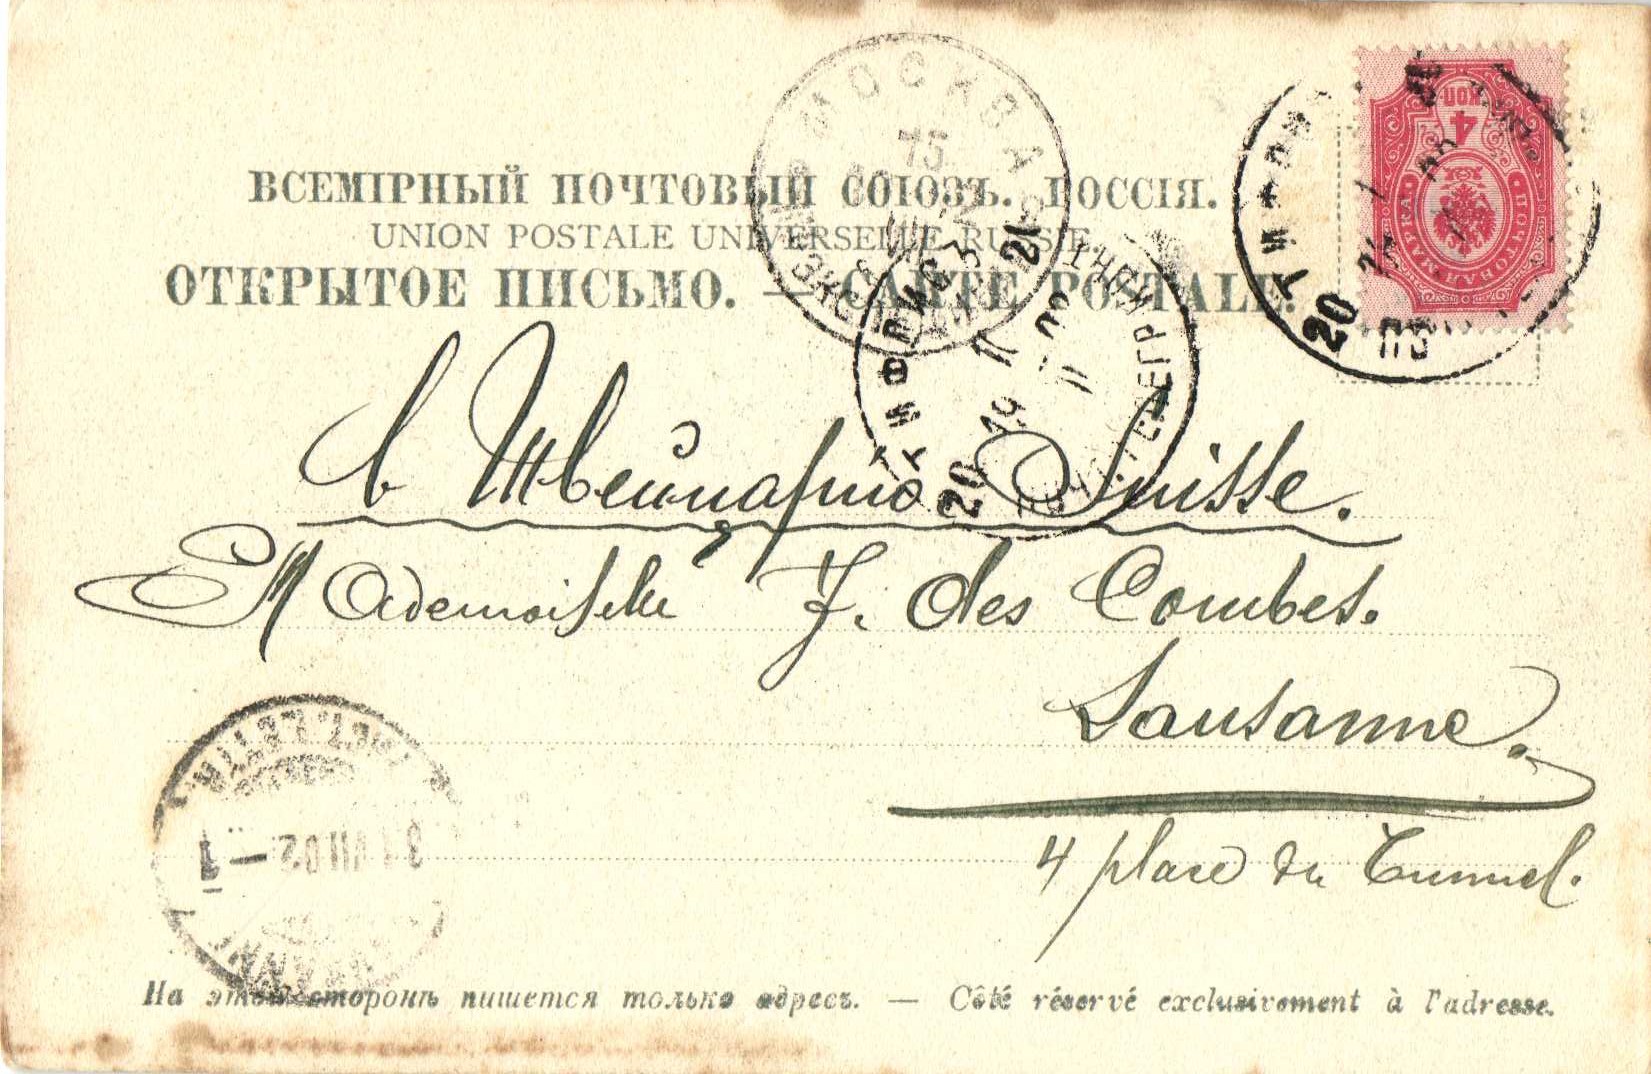 МОСКВА
15
ВСЕМІРНЫЙ ПОЧТОВЫЙ СОЮЗЪ. РОССІЯ.
UNION POSTALE UNIVERSELLE RUSSIE
ОТКРЫТОЕ ПИСЬМО. — CARTE POSTALE.
4 КОП
ПОЧТОВАЯ МАРКА
ТИФЛИС
20
ТИФЛИСЪ
19
20
в Швейцарію Suisse.
Mademoiselle J. des Combes.
Lausanne.
4 place du Tunnel.
31 VII 02 – 1
На этой сторонѣ пишется только адресъ. — Côté réservé exclusivement à l'adresse.